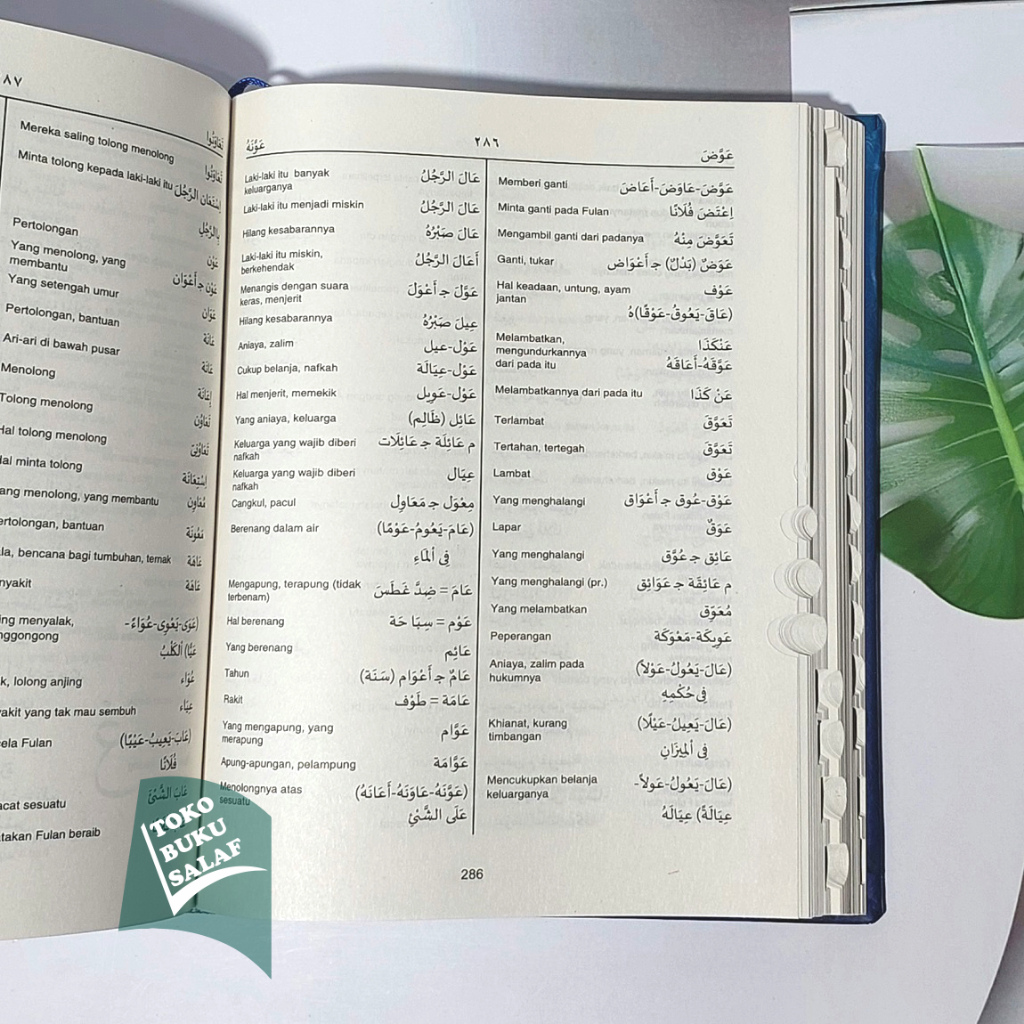 ٢٨٦
عَوَّضَ
عَوَّضَ-عَاوَضَ-أَعَاضَ Memberi ganti
اِعْتَضَ فُلَانًا Minta ganti pada Fulan
تَعَوَّضَ مِنْهُ Mengambil ganti dari padanya
عَوَضٌ (بَدَلٌ) ج أَعْوَاض Ganti, tukar
عَوْف Hal keadaan, untung, ayam
jantan
(عَاقَ-يَعُوقُ-عَوْقًا)هُ
عَنْكَذَا Melambatkan,
mengundurkannya
عَوَّقَهُ-أَعَاقَهُ dari pada itu
عَنْ كَذَا Melambatkannya dari pada itu
تَعَوَّقَ Terlambat
تَعَوَّقَ Tertahan, tertegah
عَوْق Lambat
عَوْق-عُوق ج أَعْوَاق Yang menghalangi
عَوَقٌ Lapar
عَائِق ج عُوَّق Yang menghalangi
م عَائِقَة ج عَوَائِق Yang menghalangi (pr.)
مُعَوِّق Yang melambatkan
عَوِيكَة-مَعْوَكَة Peperangan
(عَالَ-يَعُولُ-عَوْلاً) Aniaya, zalim pada
hukumnya
فِي حُكْمِهِ
(عَالَ-يَعِيلُ-عَيْلًا) Khianat, kurang
timbangan
فِي اْلمِيْزَانِ
(عَالَ-يَعُولُ-عَوْلاً- Mencukupkan belanja
keluarganya
عِيَالَةً) عِيَالَهُ
عَوَّنَهُ
عَالَ الرَّجُلُ Laki-laki itu banyak
keluarganya
عَالَ الرَّجُلُ Laki-laki itu menjadi miskin
عَالَ صَبْرُهُ Hilang kesabarannya
أَعَالَ الرَّجُلُ Laki-laki itu miskin,
berkehendak
عَوَّلَ ج أَعْوَلَ Menangis dengan suara
keras, menjerit
عِيلَ صَبْرُهُ Hilang kesabarannya
عَوْل-عيل Aniaya, zalim
عَوْل-عِيَالَة Cukup belanja, nafkah
عَوْل-عَوِيل Hal menjerit, memekik
عَائِل (ظَالِم) Yang aniaya, keluarga
م عَائِلَة ج عَائِلَات Keluarga yang wajib diberi
nafkah
عِيَال Keluarga yang wajib diberi
nafkah
مِعْوَل ج مَعَاوِل Cangkul, pacul
(عَامَ-يَعُومُ-عَوْمًا) Berenang dalam air
فِي اْلمَاءِ
عَامَ = ضِدَّ غَطَسَ Mengapung, terapung (tidak
terbenam)
عَوْم = سِبَاحَة Hal berenang
عَائِم Yang berenang
عَامٌ ج أَعْوَام (سَنَة) Tahun
عَامَة = طَوْف Rakit
عَوَّام Yang mengapung, yang
merapung
عَوَّامَة Apung-apungan, pelampung
(عَوَّنَهُ-عَاوَنَهُ-أَعَانَهُ) Menolongnya atas
sesuatu
عَلَى الشَّيْئِ
286
٨٧
تَعَاوَنُوا
تَعَاوَنُوا Mereka saling tolong menolong
اِسْتَعَانَ الرَّجُلَ Minta tolong kepada laki-laki itu
بِالرَّجُلِ
عَوْن Pertolongan
عَوْن ج أَعْوَان Yang menolong, yang
membantu
عَوَان Yang setengah umur
عَانَة Pertolongan, bantuan
عَانَة Ari-ari di bawah pusar
إِعَانَة Menolong
تَعَاوُن Tolong menolong
تَعَاوُنِيّ Hal tolong menolong
اِسْتِعَانَة Hal minta tolong
مُعَاوِن menolong, yang membantu
مَعُونَة bantuan
عَاهَة bencana bagi tumbuhan, ternak
عَاهَة
(عَوَى-يَعْوِى-عُوَاءً- menyalak,
عَيًّا) اَلْكَلْبُ
عُوَاء lolong anjing
عَيَاء yang tak mau sembuh
(عَابَ-يَعِيبُ-عَيْبًا) Fulan
فُلَانًا
عَابَ الشَّيْئَ sesuatu
Fulan beraib
TOKO
BUKU
SALAF